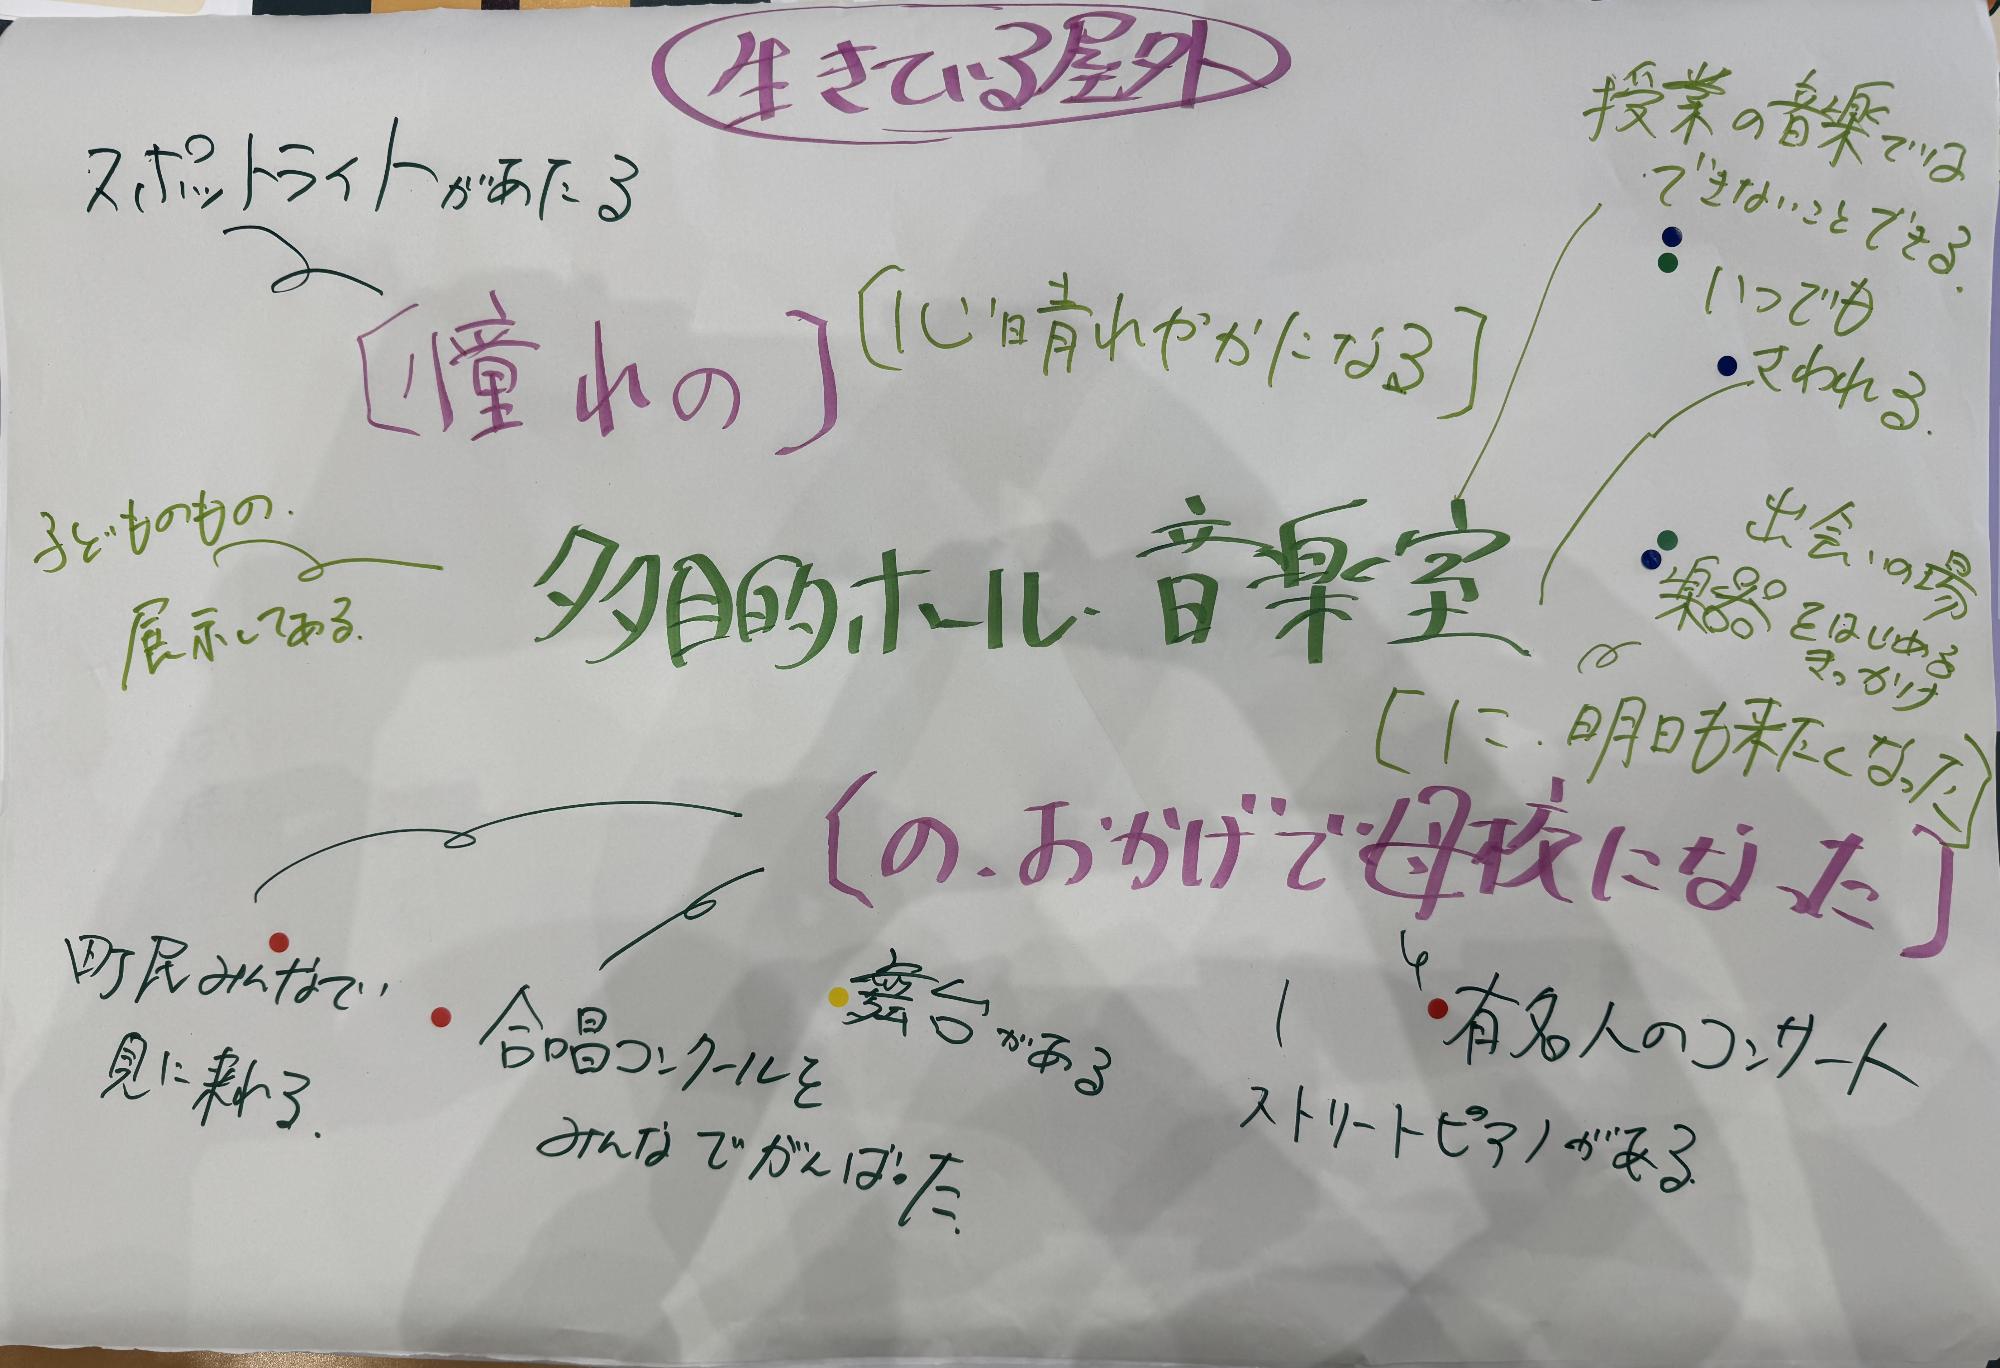 生きている屋外
スポットライトがあたる
授業の音楽では
できないことできる.
いつでも
さわれる.
[憧れの]
[心晴れやかになる]
子どものもの.
展示してある.
多目的ホール・音楽室
出会いの場
楽器をはじめる
きっかけ
[に.明日も来たくなった]
[の.おかげで母校になった]
町民みんなで
見に来れる.
合唱コンクールを
みんなでがんばった.
舞台がある
有名人のコンサート
ストリートピアノがある